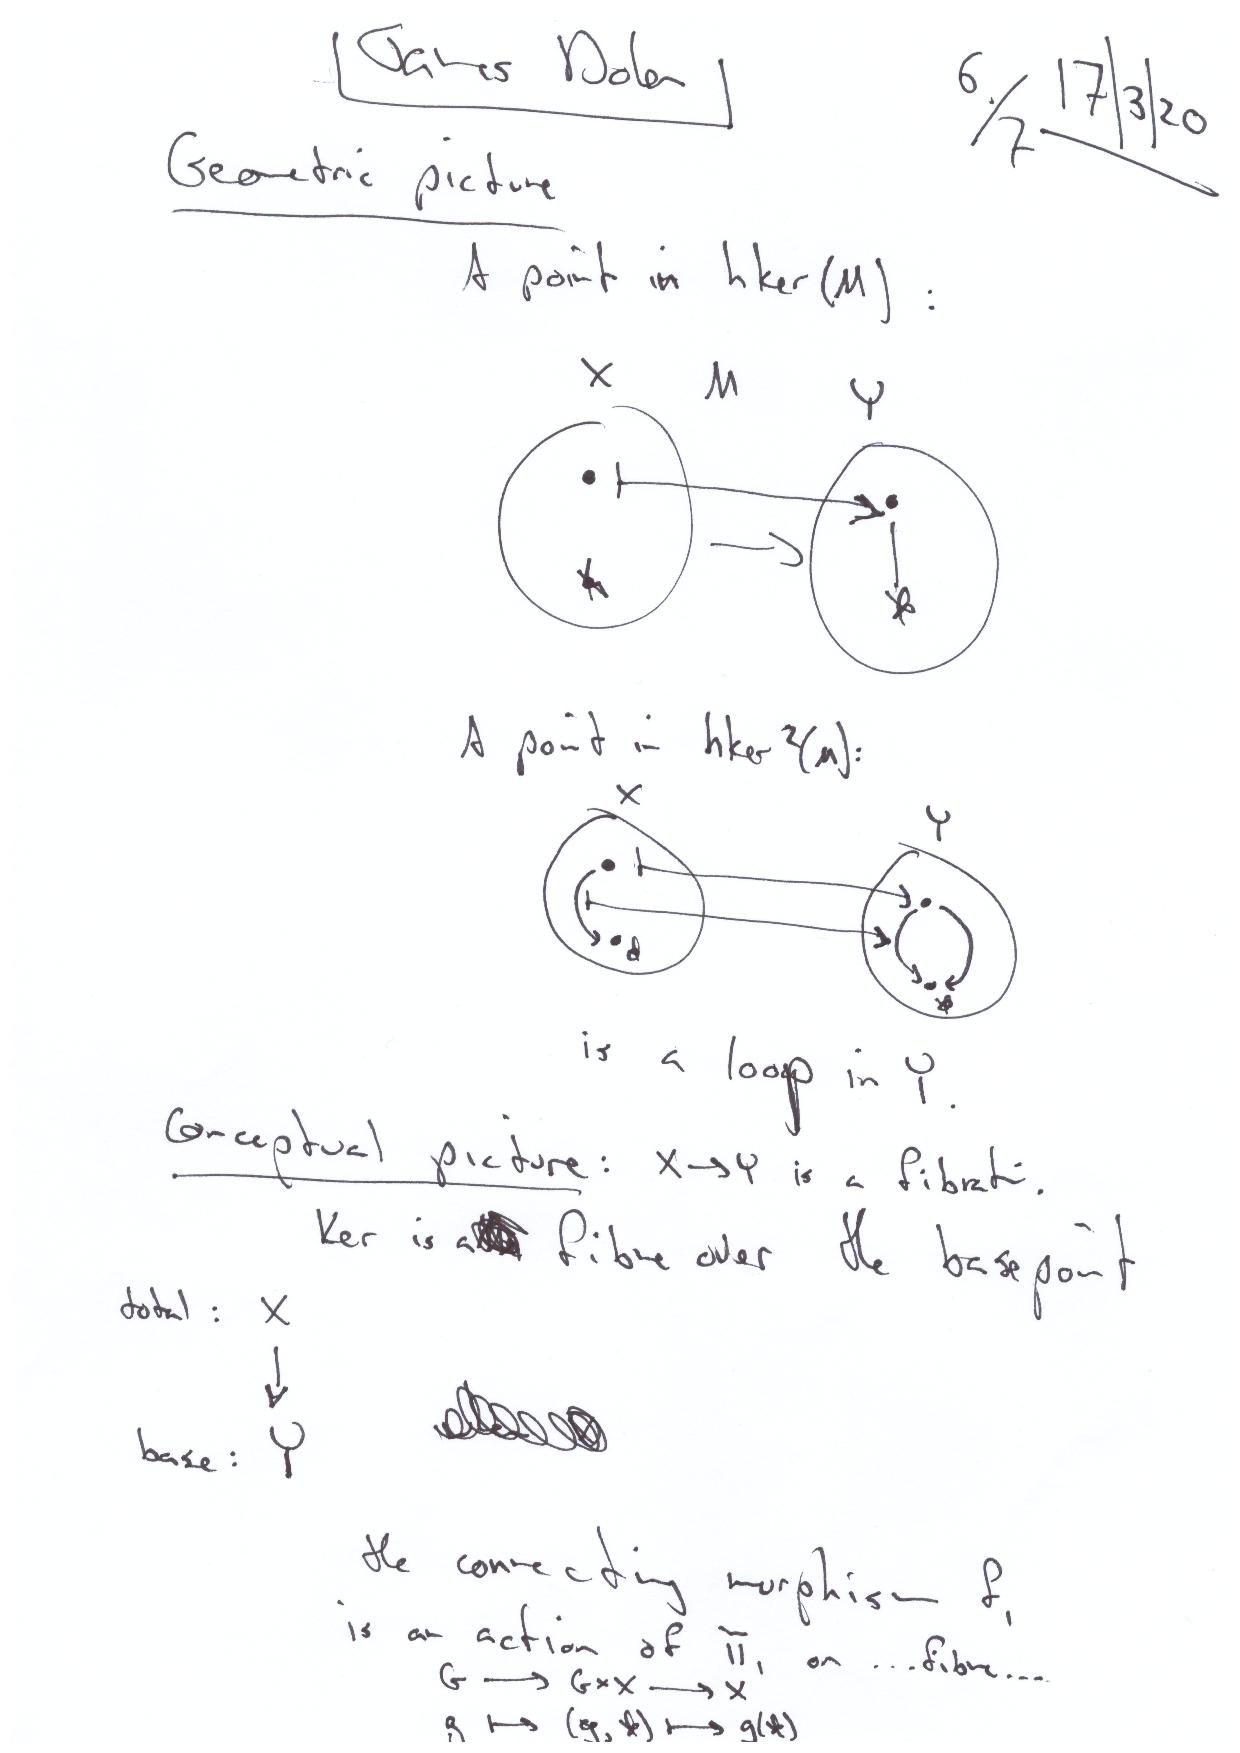 James Dolan
6./7 17/3/20
Geometric picture
A point in hker(M) :
X M Y
*
A point in hker²(M):
X
Y
*
is a loop in Y.
Conceptual picture: X→Y is a fibrati.
Ker is a fibre over the basepoint
total : X
↓
base : Y
the connecting morphism f₁
is an action of π₁ on ...fibre....
G → G×X → X
g ↦ (g, *) ↦ g(*)